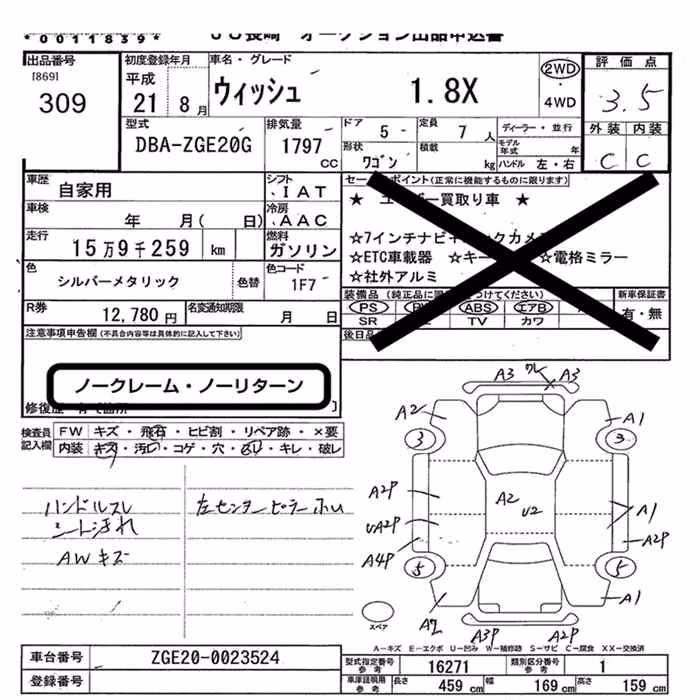 *0011839*
JU長崎 オークション出品申込書
出品番号
[869]
309
初度登録年月
平成
21年 8月
車名・グレード
ウィッシュ 1.8X
2WD
・
4WD
評価点
3.5
外装 内装
C C
型式
DBA-ZGE20G
排気量
1797
CC
ドア 5
定員 7人
ディーラー・並行
形状
ワゴン
積載 kg
モデル年式 年
ハンドル 左・右
車歴
自家用
シフト
IAT
車検 年 月( 日)
冷房
AAC
走行
15万9千259 km
燃料
ガソリン
色
シルバーメタリック
色替
色コード
1F7
R券
12,780円
名変通知期限 月 日
セールスポイント(正常に機能するものに限ります)
★ ユーザー買取り車 ★
☆7インチナビ+バックカメラ
☆ETC車載器 ☆キー ☆電格ミラー
☆社外アルミ
装備品(純正品に○をつけてください)
新車保証書
PS ABS エアB
有・無
SR TV カワ
後日品
注意事項申告欄(不具合内容等は具体的に記入して下さい)
ノークレーム・ノーリターン
修復歴 有(箇所 ]
検査員記入欄
FW キズ・飛石・ヒビ割・リペア跡・×要
内装 キズ・汚れ・コゲ・穴・ ・キレ・破レ
ハンドルスレ
シート汚れ
AWキズ
左センターピラー
A3 ワレ A3
A2 A1
3 3
A2P A2 U2 A1
UA2P A2P
A4P
5 5
A2 A1
A3P A2P
スペア
A-キズ E-エクボ U-凹み W-補修跡 S-サビ C-腐食 XX-交換済
車台番号 ZGE20-0023524
登録番号
型式指定番号 参考 16271
類別区分番号 参考 1
車庫証明用 参考 長さ 459cm 幅 169cm 高さ 159cm